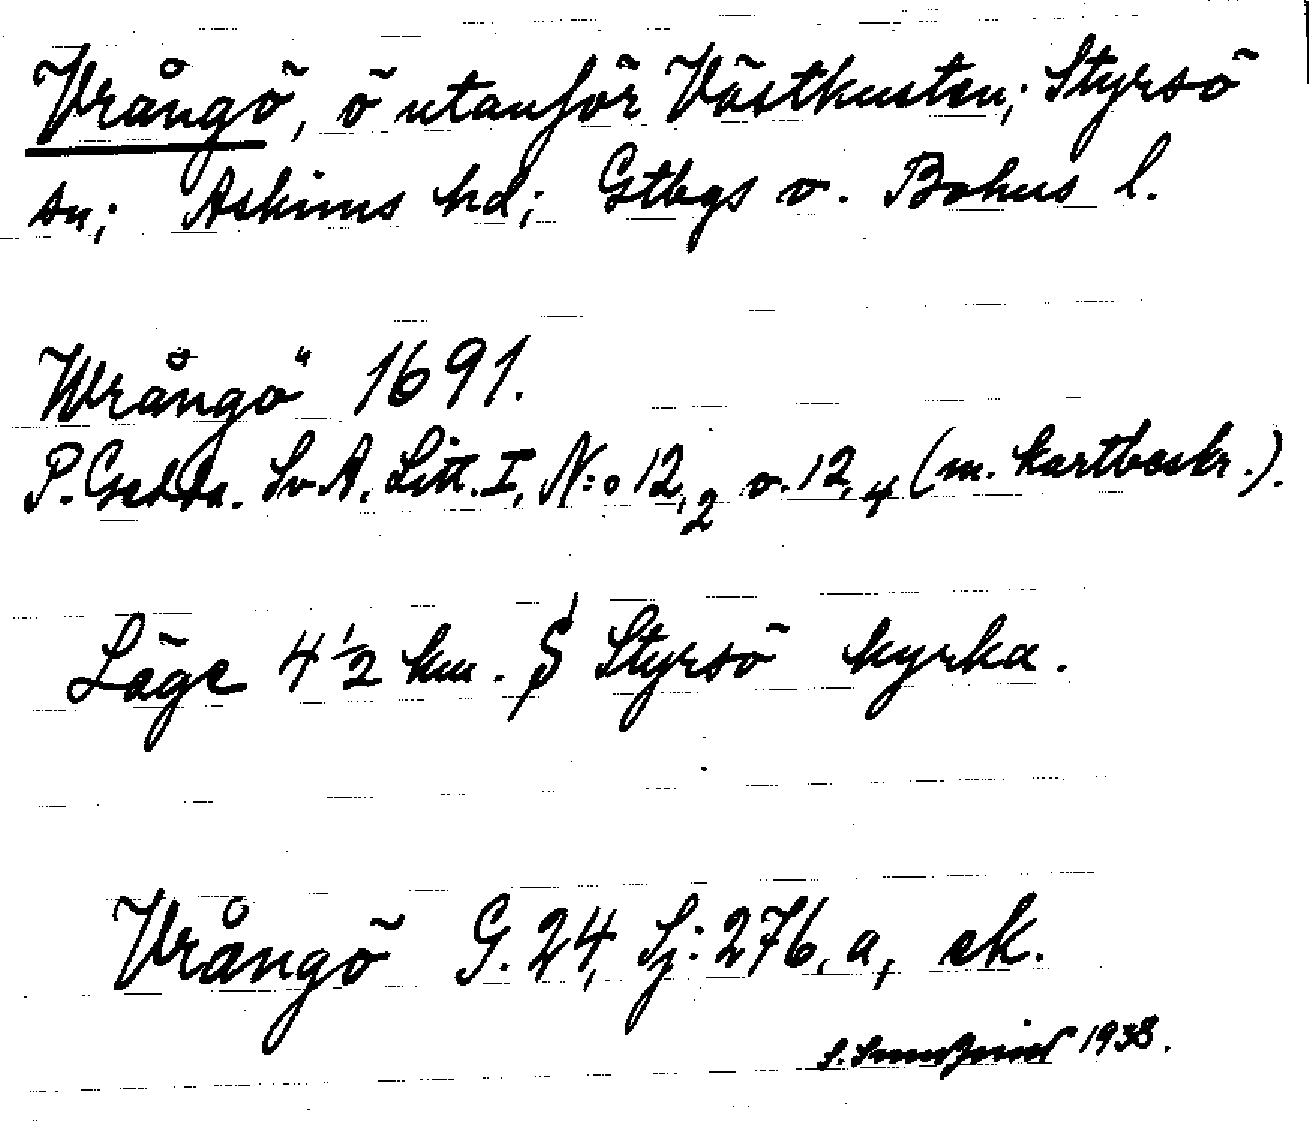 Vrångö, ö utanför Västkusten; Styrsö
sn; Askims hd; Gtbgs o. Bohus l.
Wrångö 1691.
P. Gedda. Sv. A. Litt. I, N:o 12,2 o. 12,4 (m. kartbeskr.).
Läge 4 1/2 km. S Styrsö kyrka.
Vrångö G. 24, Sj: 276, a, ek.
1938.